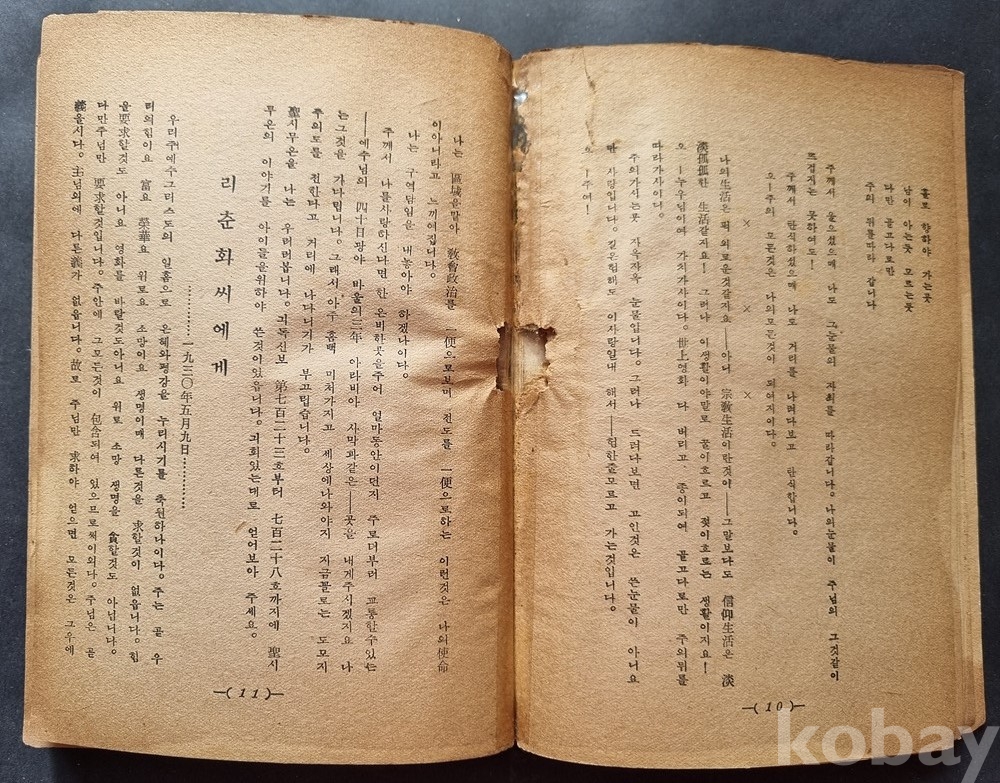 홀로 향하야 가는곳
남이 아는곳 모르는곳
다만 골고다로만
주의 뒤를따라 갑니다
주께서 울으섰으매 나도 그눈물의 자최를 따라갑니다. 나의눈물이 주님의 그것같이
뜨겁지는 못하여도!
주께서 탄식하섰으매 나도 거리를 나려다보고 탄식합니다.
오—주의 모든것은 나의모든것이 되여지이다.
× × ×
나의生活은 퍽 외로운것같지요——아니 宗敎生活이란것이——그말보다도 信仰生活은 淡
淡孤孤한 生活같지요! 그러나 이생활이야말로 꿀이흐르고 젖이흐르는 생활이지요!
오—누우님이여 가치가사이다. 世上영화 다 버리고 종이되여 골고다로만 주의뒤를
따라가사이다.
주의가시는곳 자옥자옥 눈물입니다. 그러나 드러다보면 고인것은 쓴눈물이 아니요
단 사랑입니다. 길은험해도 이사랑일내 해서——험한줄모르고 가는것입니다.
오—주여!
—(10)—
나는 區域을맡아 敎會政治를 一便으로보며 전도를 一便으로하는 이런것은 나의使命
이아니라고 느끼여집니다.
나는 구역담임을 내놓아야 하겠나이다.
주께서 나를사랑하신다면 한 은비한곳을주어 얼마동안이던지 주로더부러 교통할수있는
——예수님의 四十日광야 바울의三年 아라비아 사막과같은——곳을 내게주시겠지요 나
는그것을 기다립니다. 그래서 아주 흠뻑 미처가지고 세상에나와야지 지금꼴로는 도모지
주의도를 전한다고 거리에 나다니기가 부끄럽습니다.
聖시무온을 나는 우러러봅니다. 긔독신보 第七百二十三호부터 七百二十八호까지에 聖시
무온의 이야기를 아이들을위하야 쓴것이있읍니다. 긔회있는대로 얻어보아 주세요.
리춘화씨에게
…………一九三○年五月九日…………
우리주예수그리스도의 일홈으로 은혜와평강을 누리시기를 축원하나이다. 주는 곧 우
리의힘이요 富요 榮華요 위로요 소망이요 생명이매 다른것을 求할것이 없읍니다. 힘
을要求할것도 아니요 영화를 바랄것도아니요 위로 소망 생명을 貪할것도 아닙니다.
다만주님만 要求할것입니다. 주안에 그모든것이 包含되여 있으므로써이외다. 주님은 곧
義을시다. 主님의에 다른義가 없읍니다. 故로 주님만 求하야 얻으면 모든것은 그우에
—(11)—
kobay